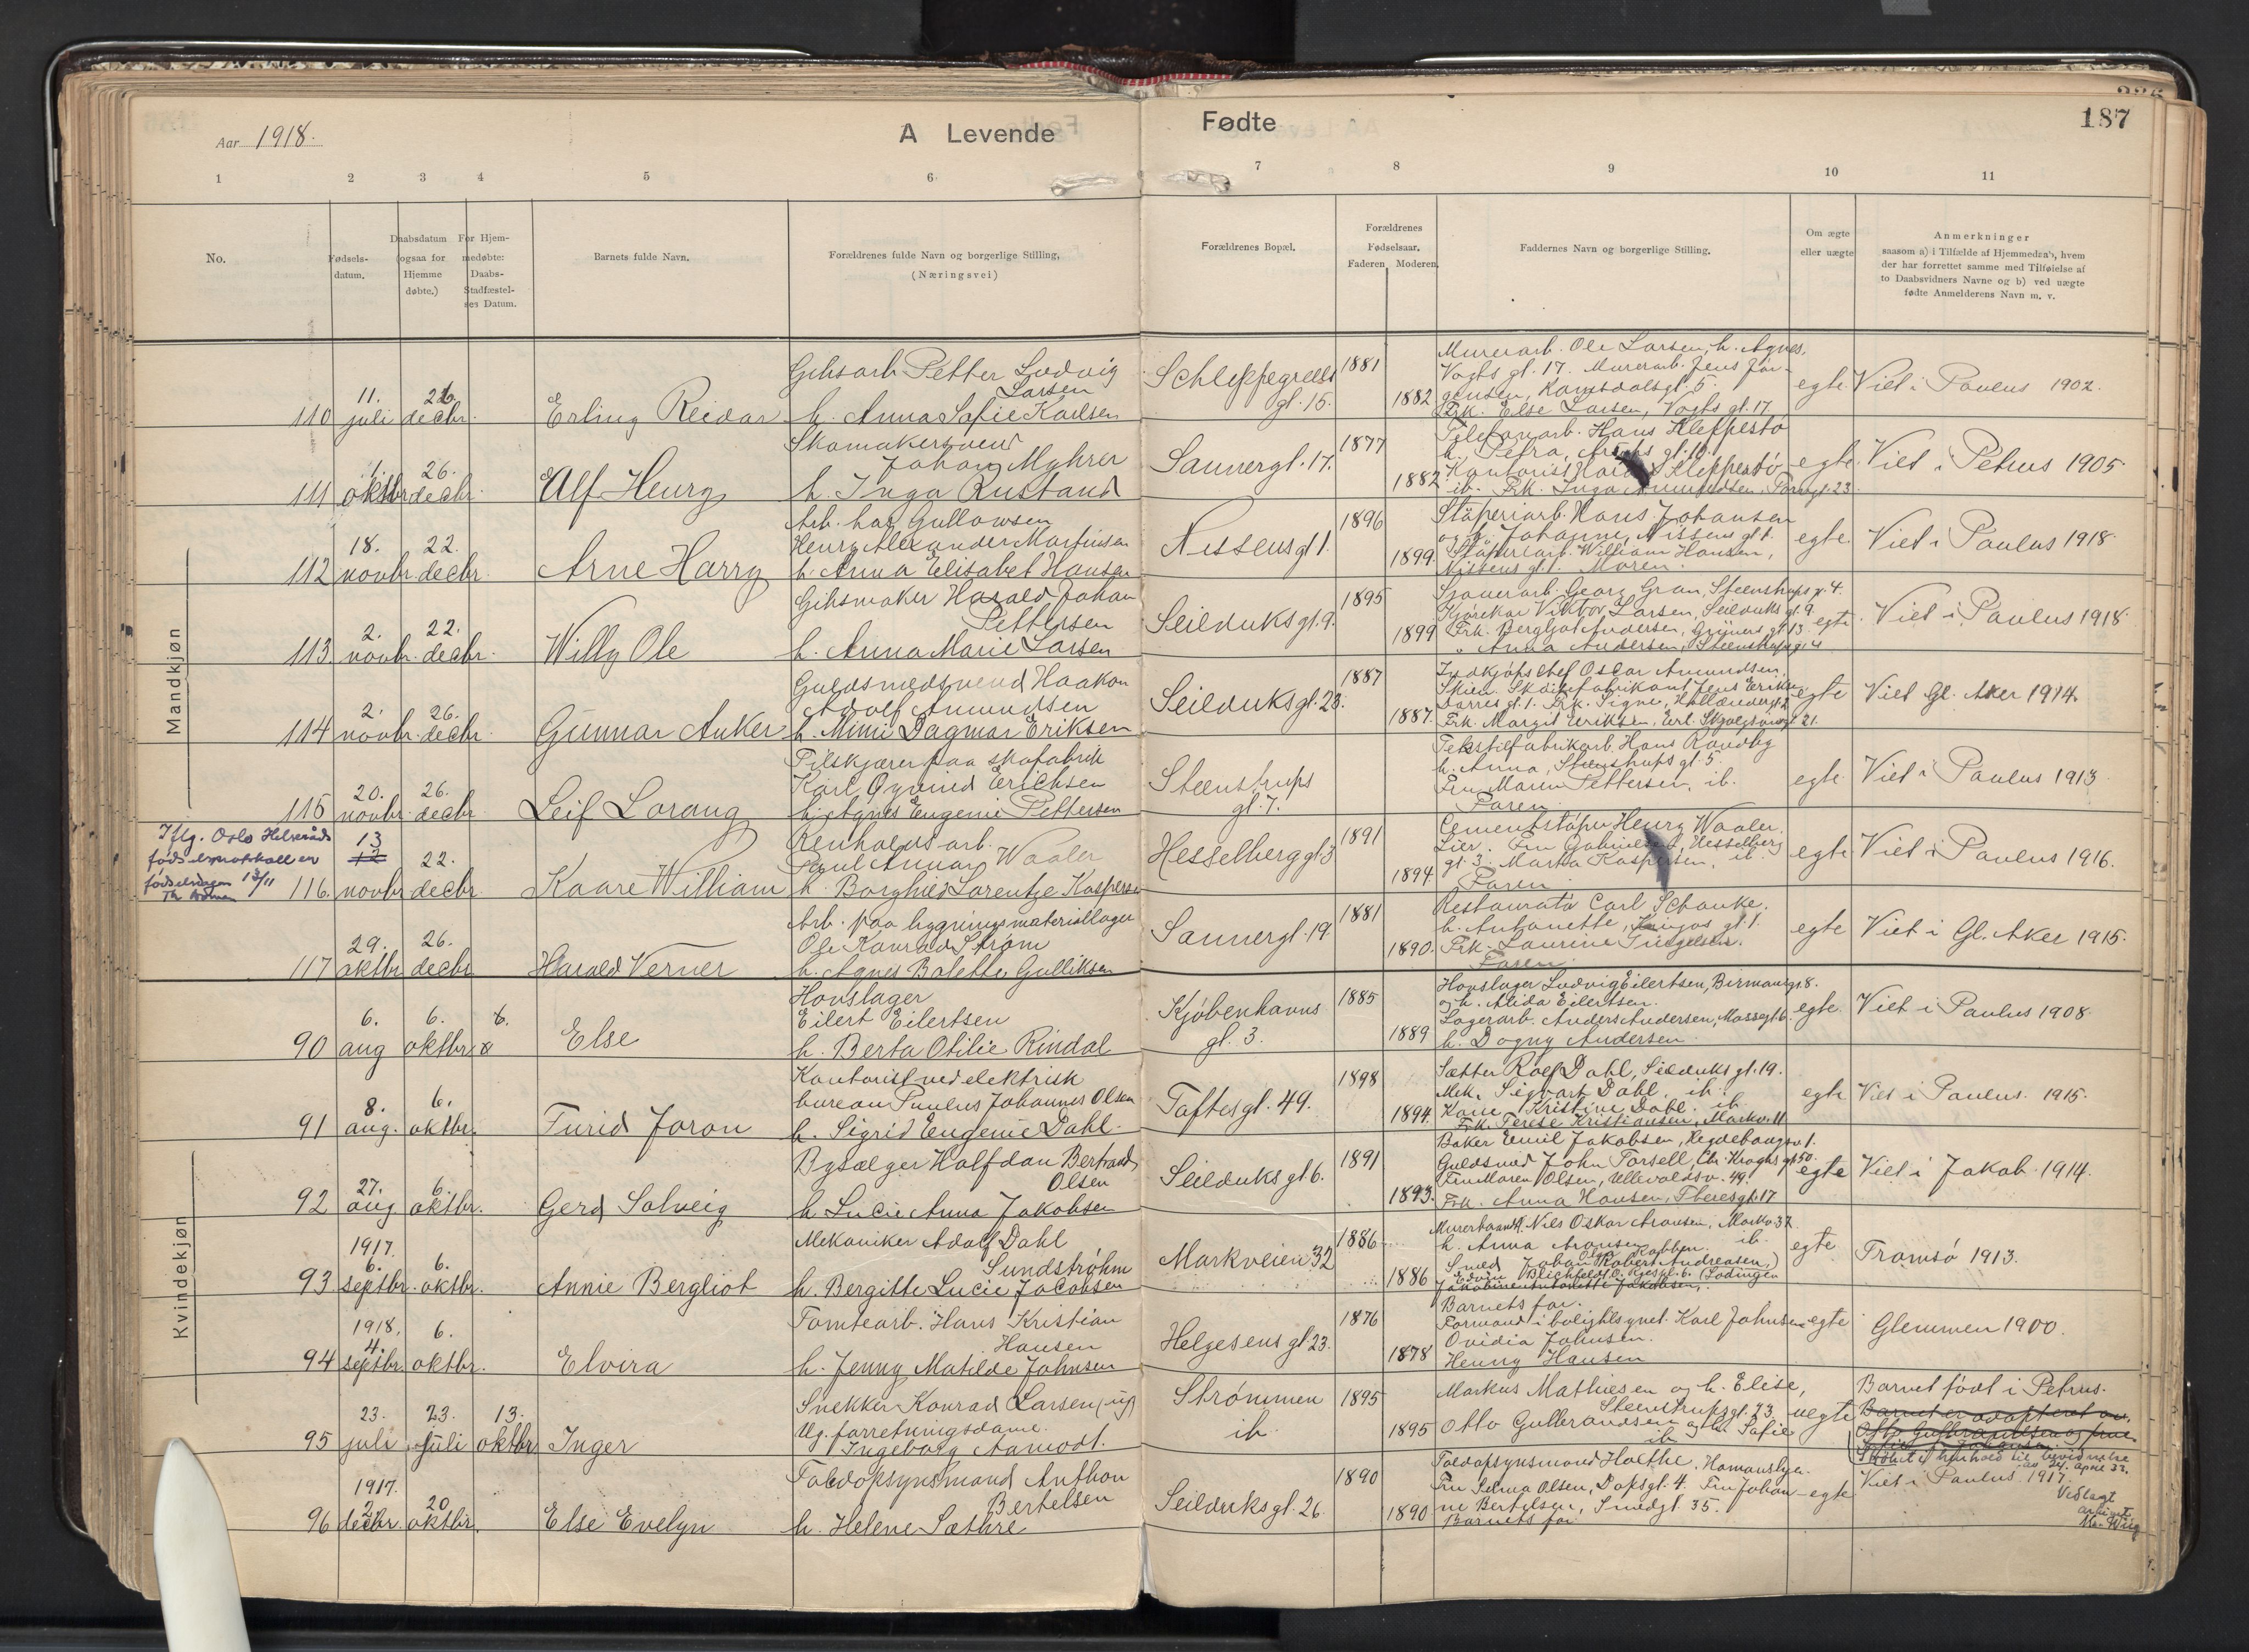 187
Aar 1918.
A Levende
Fødte
1 2 3 4 5 6 7 8 9 10 11
No.
Fødsels-
datum.
Daabsdatum
(ogsaa for
Hjemme
døbte.)
For Hjem-
medøbte:
Daabs-
Stadfæstel-
ses Datum.
Barnets fulde Navn.
Forældrenes fulde Navn og borgerlige Stilling,
(Næringsvei)
Forældrenes Bopæl.
Forældrenes
Fødselsaar.
Faderen Moderen.
Faddernes Navn og borgerlige Stilling.
Om ægte
eller uægte
Anmerkninger
saasom a) i Tilfælde af Hjemmedøb, hvem
der har forrettet samme med Tilføielse af
to Daabsvidners Navne og b) ved uægte
fødte Anmelderens Navn m. v.
Mandkjøn
110 11. juli 26. decbr. Erling Reidar
Gibsarb Petter Ludvig
Larsen
h. Anna Sofie Karlsen
Schleppegrells
gl. 15.
1881
1882
Murerarb. Ole Larsen, h. Agnes,
Vogts gt. 17. Murerarb. Jens Jør-
gensen, Romsdalsgt. 5.
Frk. Else Larsen, Vogts gt. 17
egte
Viet i Paulus 1902.
111 1. oktbr 26. decbr. Alf Henry
Skomakersvend
Johan Myhrer
h. Inga Rustand
Sannergt. 17.
1877
1882
Telefonarb. Hans Kleppestø
h. Petra,
Kontorist Kleppestø
ib. Frk. Inga
egte
Viet i Petrus 1905.
112 18. novbr. 22. decbr. Arne Harry
Arb. hos Gullowsen
Henry Alexander Martinsen
h. Anna Elisabet Hansen
Nissens gt 1.
1896
1899
Støperiarb. Hans Johansen
og h. Johanne, Nissens gt. 1.
Støperiarb. William Hansen,
Nissens gt. 1. Moren.
egte
Viet i Paulus 1918.
113 2. novbr. 22. decbr. Willy Ole
Gibsmaker Harald Johan
Pettersen
h. Anna Marie Larsen
Seilduksgt. 9.
1895
1899
Sjauerarb. Georg Gran, Steenstrups g. 4.
Kjørekar Viktor Larsen, Seilduks gt. 9
Frk. Bergljot Andersen, Grüners gt 13.
" Anna Andersen, Steenstrups gt 4
egte
Viet i Paulus 1918.
114 2. novbr. 26. decbr. Gunnar Anker
Guldsmedsvend Haakon
Adolf Amundsen
h. Mimi Dagmar Eriksen
Seilduksgt. 23.
1887
1887.
Indkjøpschef Oscar Amundsen,
Skien. Skotøifabrikant Jens Eriksen
Darres gt. 1. Frk. Signe,
Frk. Margit Eriksen, Erl. Skjalgsøns gt. 21.
egte
Viet Gl. Aker 1914.
115 20. novbr. 26. decbr. Leif Lorang
Tilskjærer paa skofabrik
Karl Øyvind Erichsen
h. Agnes Eugenie Pettersen
Steenstrups
gt. 7.
Tekstilfabrikarb. Hans Randby
h. Anna, Steenstrups gt. 5.
Fru Maren Pettersen, ib.
Faren
egte
Viet i Paulus 1913
Iflg. Oslo Helseråds
fødselsprotokoll er
fødselsdagen 13/11
13 12
116. novbr 22. decbr Kaare William
Renholdsarb.
Paul Annar Waaler
h. Borghild Lorentze Kaspersen
Hesselberg gt 3
1891
1894
Cementstøper Henry Waaler.
Lier. Fru Gabrielsen, Hesselberg
gt. 3. Martha Kaspersen, ib.
Faren
egte
Viet i Paulus 1916.
117 29. oktbr 26. decbr Harald Verner
Arb. paa bygningsmateriallager
Ole Konrad Strøm
h. Agnes Bolette Gulliksen
Sannergt. 19
1881
1890.
Restauratør Carl Schanke.
h. Antonette, Kingos gt. 1.
Frk. Laurine
Faren.
egte
Viet i Gl. Aker 1915.
Kvindekjøn
90 6. aug 6. oktbr 8. Else
Hovslager
Eilert Eilertsen
h. Berta Otilie Rindal
Kjøbenhavns
gt. 3.
1885
1889
Hovslager Ludvig Eilertsen, Birmanns gt 8.
og h. Alida Eilertsen.
Lagerarb. Anders Andersen, Mossegt 6.
h. Dagny Andersen
egte.
Viet i Paulus 1908.
91 8. aug. 6. oktbr. Turid Joron
Kontorist ved elektrisk
bureau Paulus Johannes Olsen
h. Sigrid Eugenie Dahl.
Toftesgt. 49.
1898
1894
Sætter Rolf Dahl, Seilduks gt. 19.
Mek. Sigvart Dahl. ib.
Kone Kristine Dahl. ib
Frk. Terese Kristiansen, Markv. 11
egte
Viet i Paulus. 1915.
92 27. aug 6. oktbr. Gerd Solveig
Bysælger Halfdan Bertrand
Olsen
h Lucie Anna Jakobsen
Seilduks gt 6.
1891
1893.
Baker Emil Jakobsen, Hegdehaugsv 1.
Guldsmed John Torsell, Chr. Kroghs gt 50.
Fru Maren Olsen, Ullevoldsv. 49.
Frk. Anna Hansen, Theresgt. 17
egte
Viet i Jakob 1914.
1917.
93 6. septbr. 6. oktbr. Annie Bergliot
Mekaniker Adolf Dahl
Sundstrøhm
h. Bergitte Lucie Jacobsen
Markveien 32
1886
1886
Murerhaandl. Nils Oskar Aronsen, Markv 32
h. Anna Aronsen ib.
Smed Johan Robert Andreasen,
Jakobine Antonette Jakobsen,
egte
Tromsø 1913.
1918,
94 4. septbr. 6. oktbr. Elvira
Tomtearb. Hans Kristian
Hansen
h. Jenny Matilde Johnsen
Helgesens gt 23.
1876
1878
Barnets far.
Formand i boligtilsynet Karl Johnsen
Ovidia Johnsen.
Henny Hansen
egte
Glemmen 1900.
95 23. juli 23. juli 13. oktbr Inger
Snekker Konrad Larsen (ug)
Ug. forretningsdame
Ingeborg Aamodt.
Strømmen
ib.
1895
1895
Markus Mathiesen og h. Elise,
Steenstrupsgt. 23
Otto Gulbrandsen og h. Sofie
ib
uegte
Barnet født i Petrus.
Barnet er adopteret av
Otto Gulbrandsen og frue
Sofie f. Johansen
Strøket i henhold til
av 24. april 33.
1917.
96 2. decbr. 20 oktbr. Else Evelyn
Toldopsynsmand Anthon
Bertelsen
h. Helene Sæthre
Seilduksgt. 26.
1890
1890
Toldopsynsmand Holthe, Homansbyen.
Fru Selma Olsen, Dopsgt. 4. Fru Johan-
ne Bertelsen, Smedgt 35.
Barnets far
egte
Viet i Paulus 1917.
Vedlagt